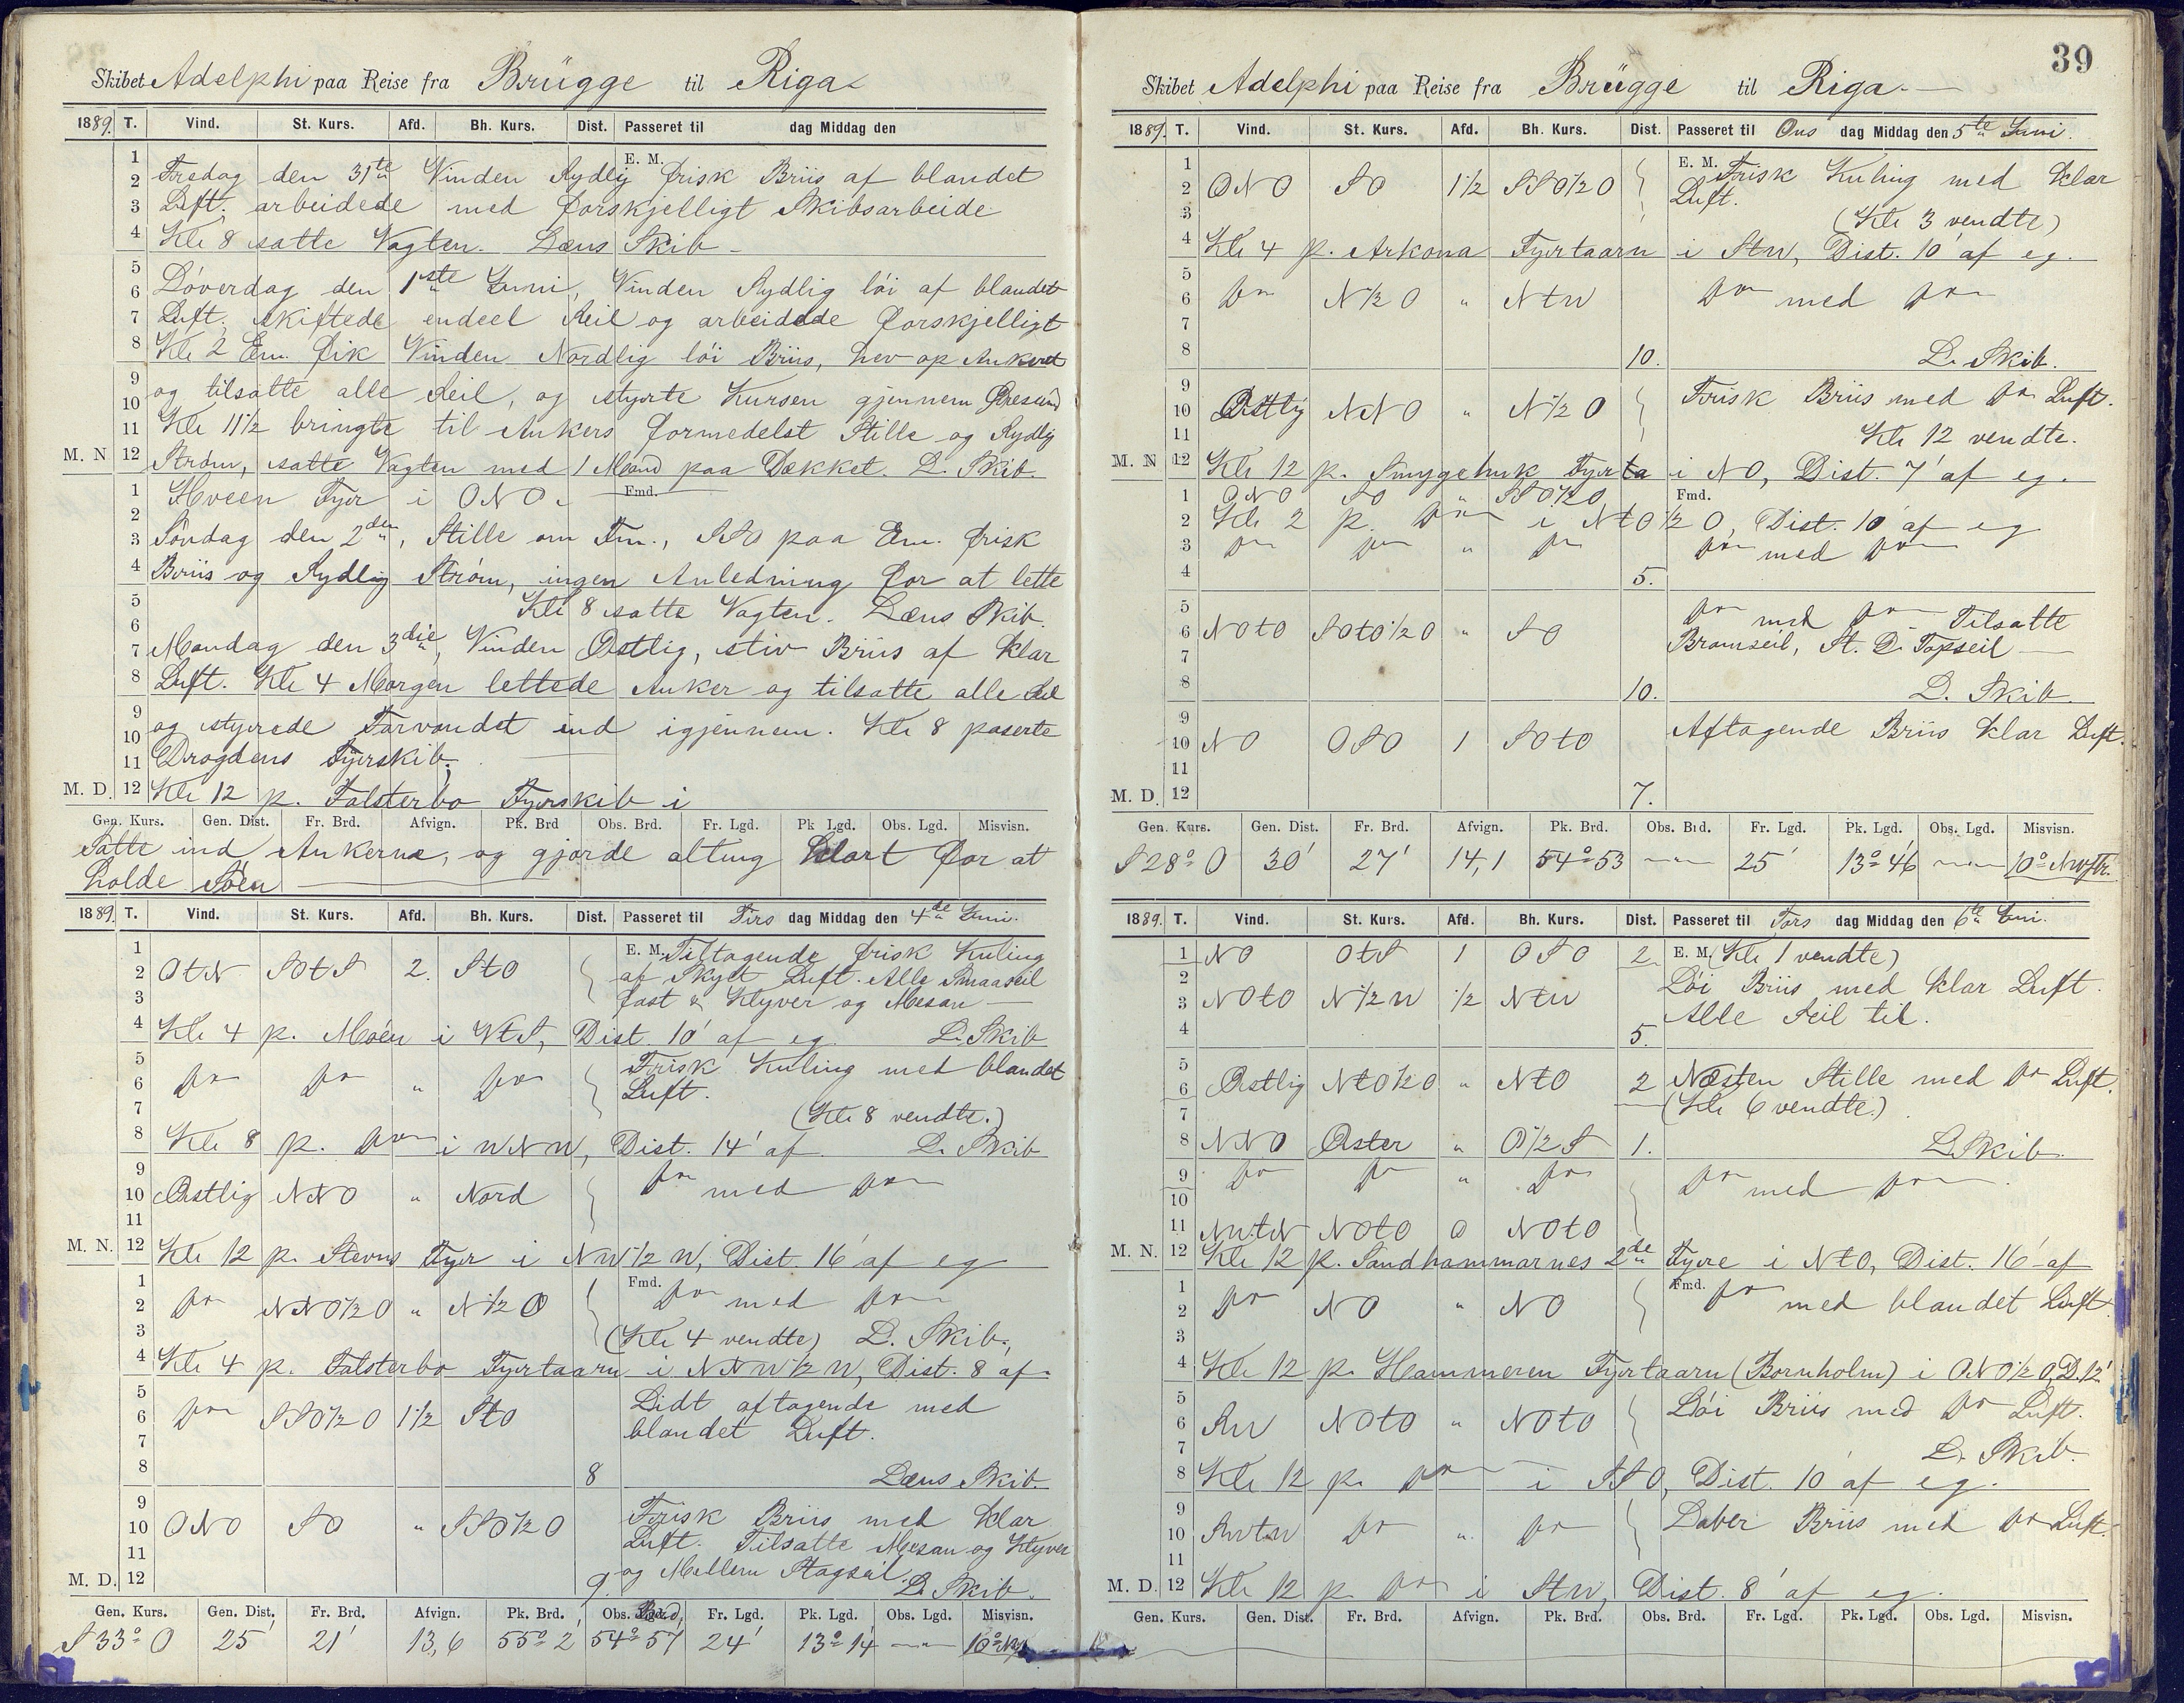 Skibet Adelphi paa Reise fra Brügge til Riga
1889. T. Vind. St. Kurs. Afd. Bh. Kurs. Dist. Passeret til dag Middag den
E. M.
Fredag den 31te Vinden Sydlig frisk Briis af blandet
Luft, arbeidede med forskjelligt Skibsarbeide
4 Kle 8 satte Vagten. Læns Skib
Löverdag den 1ste Juni, Vinden Sydlig löi af blandet
Luft, skiftede endeel Seil og arbeidede forskjelligt
8 Kle 2 Em. fik Vinden Nordlig löi Briis, hev op Ankeret
og tilsatte alle Seil, og styrte Kursen gjennem Øresund
Kle 11 1/2 bringte til Ankers formedelst Stille og Sydlig
M. N 12 Ström, satte Vagten med 1 Mand paa Dækket. L. Skib.
Hveen Fyr i ONO. Fmd.
Söndag den 2den, Stille om Fm., SSO paa Em. frisk
4 Briis og Sydlig Ström, ingen Anledning for at lette
Kle 8 satte Vagten. Læns Skib.
Mandag den 3die, Vinden Østlig, stiv Briis af klar
8 Luft. Kle 4 Morgen lettede Anker og tilsatte alle Seil
og styrede Farvandet ind igjennem. Kle 8 paserte
Drogdens Fyrskib,
M. D. 12 Kle 12 p. Falsterbo Fyrskib i
Gen. Kurs. Gen. Dist. Fr. Brd. Afvign. Pk. Brd Obs. Brd. Fr. Lgd. Pk Lgd. Obs. Lgd. Misvisn.
Satte ind Ankerne, og gjorde alting klart for at
holde Söen
1889. T. Vind. St. Kurs. Afd. Bh. Kurs. Dist. Passeret til Tirs dag Middag den 4de Juni.
E. M. Tiltagende frisk Kuling
2 OtN SOtS 2. StO af Skyet Luft. Alle Smaaseil
fast & Klyver og Mesan
4 Kle 4 p. Möen i VtS, Dist. 10' af eg. L. Skib
Frisk Kuling med blandet
6 do do " do Luft.
(Kle 8 vendte.)
8 Kle 8 p. do i WNW, Dist. 14' af L. Skib
10 Østlig NNO " Nord do med do
M. N. 12 Kle 12 p. Stevns Fyr i NW 1/2 W, Dist. 16' af eg
Fmd.
2 do NNO 1/2 O " N 1/2 O do med do
(Kle 4 vendte) L. Skib.
4 Kle 4 p. Falsterbo Fyrtaarn i NNW 1/2 W, Dist. 8 af
6 do SSO 1/2 O 1 1/2 StO Lidt aftagende med
blandet Luft.
8 8 Læns Skib.
10 ONO SO " SSO 1/2 O Frisk Briis med klar
Luft. Tilsatte Mesan og Klyver
og Mellem Stagseil.
M. D. 12 9. L. Skib.
Gen. Kurs. Gen. Dist. Fr. Brd. Afvign. Pk. Brd. Obs. Brd. Fr. Lgd. Pk. Lgd. Obs. Lgd. Misvisn.
S 33° O 25' 21' 13,6 55° 2' 54° 57' 24' 13° 14' 10°
39
Skibet Adelphi paa Reise fra Brügge til Riga
1889. T. Vind. St. Kurs. Afd. Bh. Kurs. Dist. Passeret til Ons dag Middag den 5te Juni.
E. M. Frisk Kuling med klar
2 ONO SO 1 1/2 SSO 1/2 O Luft.
(Kle 3 vendte)
4 Kle 4 p. Arkona Fyrtaarn i StW, Dist. 10' af eg.
6 do N 1/2 O " NtW do med do
8 10. L. Skib.
10 Østlig NNO " N 1/2 O Frisk Briis med do Luft.
Kle 12 vendte.
M. N 12 Kle 12 p. Smygehuk Fyrta i NO, Dist. 7' af eg.
1 ONO SO " SSO 1/2 O Fmd.
2 Kle 2 p. do i NtO 1/2 O, Dist. 10' af eg
3 do do " do do med do
4 5.
do med do Tilsatte
6 NOtO SOtO 1/2 O " SO Bramseil, St. & Topseil
8 10. L. Skib.
10 NO OSO 1 SOtO Aftagende Briis klar Luft.
M. D. 12 7.
Gen. Kurs. Gen. Dist. Fr. Brd. Afvign. Pk. Brd. Obs. Brd. Fr. Lgd. Pk. Lgd. Obs. Lgd. Misvisn.
S 28° O 30' 27' 14,1 54° 53 25' 13° 46' 10°
1889. T. Vind. St. Kurs. Afd. Bh. Kurs. Dist. Passeret til Tors dag Middag den 6te Juni.
1 NO OtS 1 OSO 2. E. M. (Kle 1 vendte)
Löi Briis med klar Luft.
3 NOtO N 1/2 W 1/2 NtW Alle Seil til.
4 5.
6 Østlig NtO 1/2 O " NtO 2 Næsten Stille med do Luft.
(Kle 6 vendte)
8 NNO Øster " O 1/2 S 1. L. Skib.
9 do do " do do med do
11 NWtN NOtO 0 NOtO
M. N. 12 Kle 12 p. Sandhammarnes 2de Fyre i NtO, Dist. 16' af
Fmd.
2 do NO " NO do med blandet Luft
4 Kle 12 p. Hammeren Fyrtaarn (Bornholm) i ONO 1/2 O, D. 12'
6 SW NOtO " NOtO Löi Briis med do Luft.
L. Skib.
8 Kle 12 p. do i SSO, Dist. 10' af eg.
10 SWtW do " do Laber Briis med do Luft.
M. D. 12 Kle 12 p. do i StW, Dist. 8' af eg.
Gen. Kurs. Gen. Dist. Fr. Brd. Afvign. Pk. Brd. Obs. Brd. Fr. Lgd. Pk. Lgd. Obs. Lgd. Misvisn.